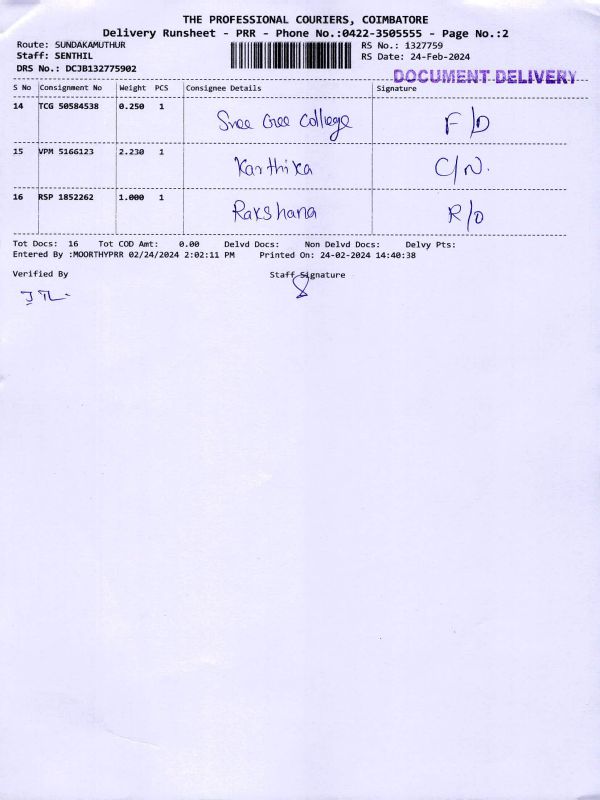 THE PROFESSIONAL COURIERS, COIMBATORE
Delivery Runsheet - PRR - Phone No.:0422-3505555 - Page No.:2
Route: SUNDAKAMUTHUR RS No.: 1327759
Staff: SENTHIL RS Date: 24-Feb-2024
DRS No.: DCJB132775902
DOCUMENT DELIVERY
S No Consignment No Weight PCS Consignee Details Signature
14 TCG 50584538 0.250 1 Sree Gree College F/D
15 VPM 5166123 2.230 1 Karthika C/N.
16 RSP 1852262 1.000 1 Rakshana R/O
Tot Docs: 16 Tot COD Amt: 0.00 Delvd Docs: Non Delvd Docs: Delvy Pts:
Entered By :MOORTHYPRR 02/24/2024 2:02:11 PM Printed On: 24-02-2024 14:40:38
Verified By Staff Signature